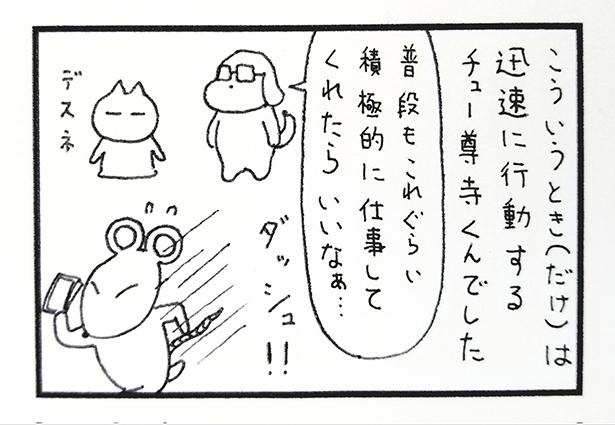 こういうとき(だけ)は
迅速に行動する
チュー尊寺くんでした
普段もこれぐらい
積極的に仕事して
くれたらいいなぁ…
デスネ
ダッシュ!!